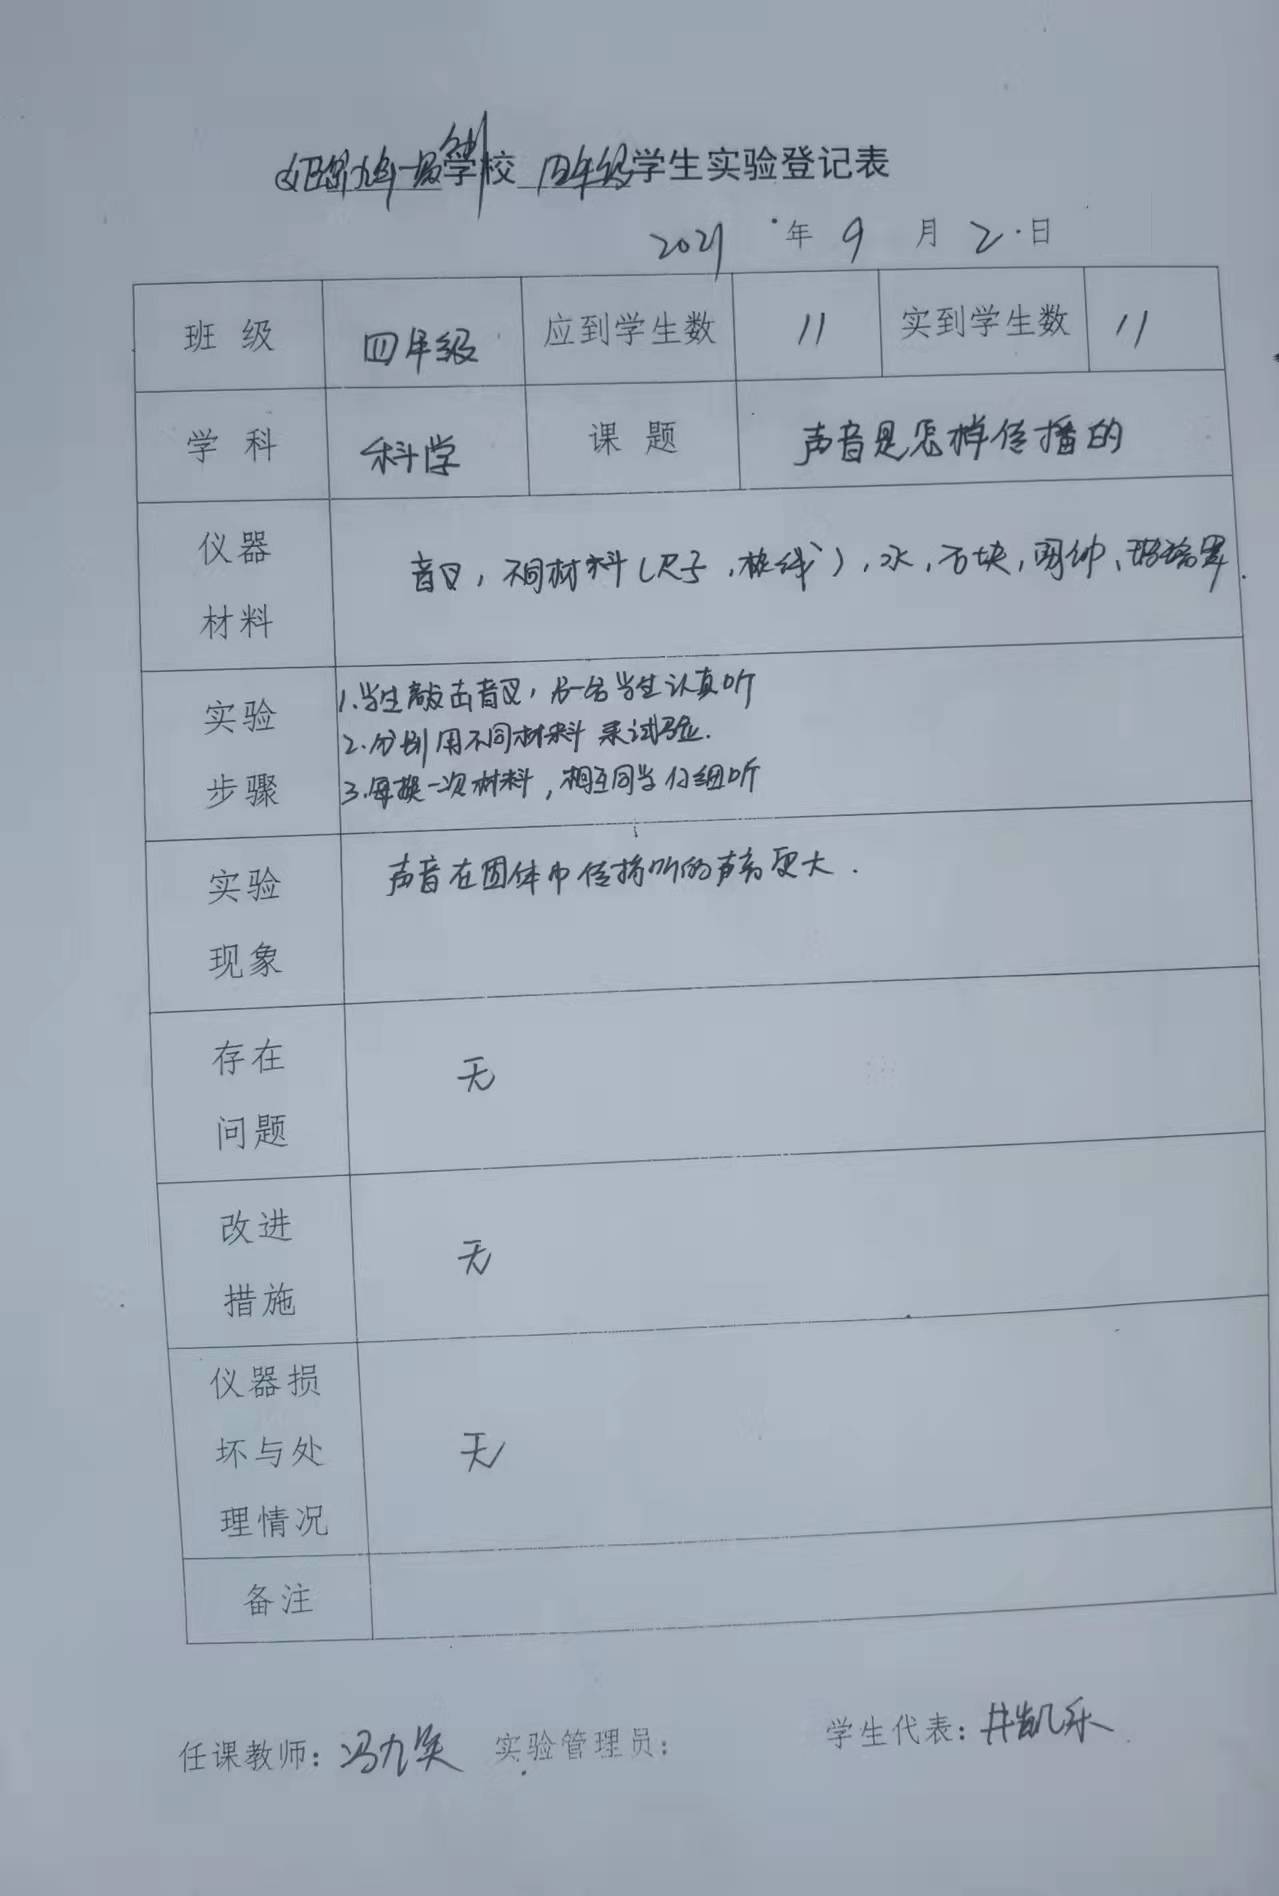 九年一贯制学校 四年级学生实验登记表
2021 年 9 月 2 日
班 级 四年级 应到学生数 11 实到学生数 11
学 科 科学 课 题 声音是怎样传播的
仪器
材料
音叉,不同材料(尺子,棉线),水,石块,闹钟、玻璃罩.
实验
步骤
1.学生敲击音叉,另一名学生认真听
2.分别用不同材料来试验.
3.每换一次材料,相互同学仔细听
实验
现象
声音在固体中传播听的声音更大.
存在
问题
无
改进
措施
无
仪器损
坏与处
理情况
无
备注
任课教师: 冯九 实验管理员: 学生代表: 井凯乐